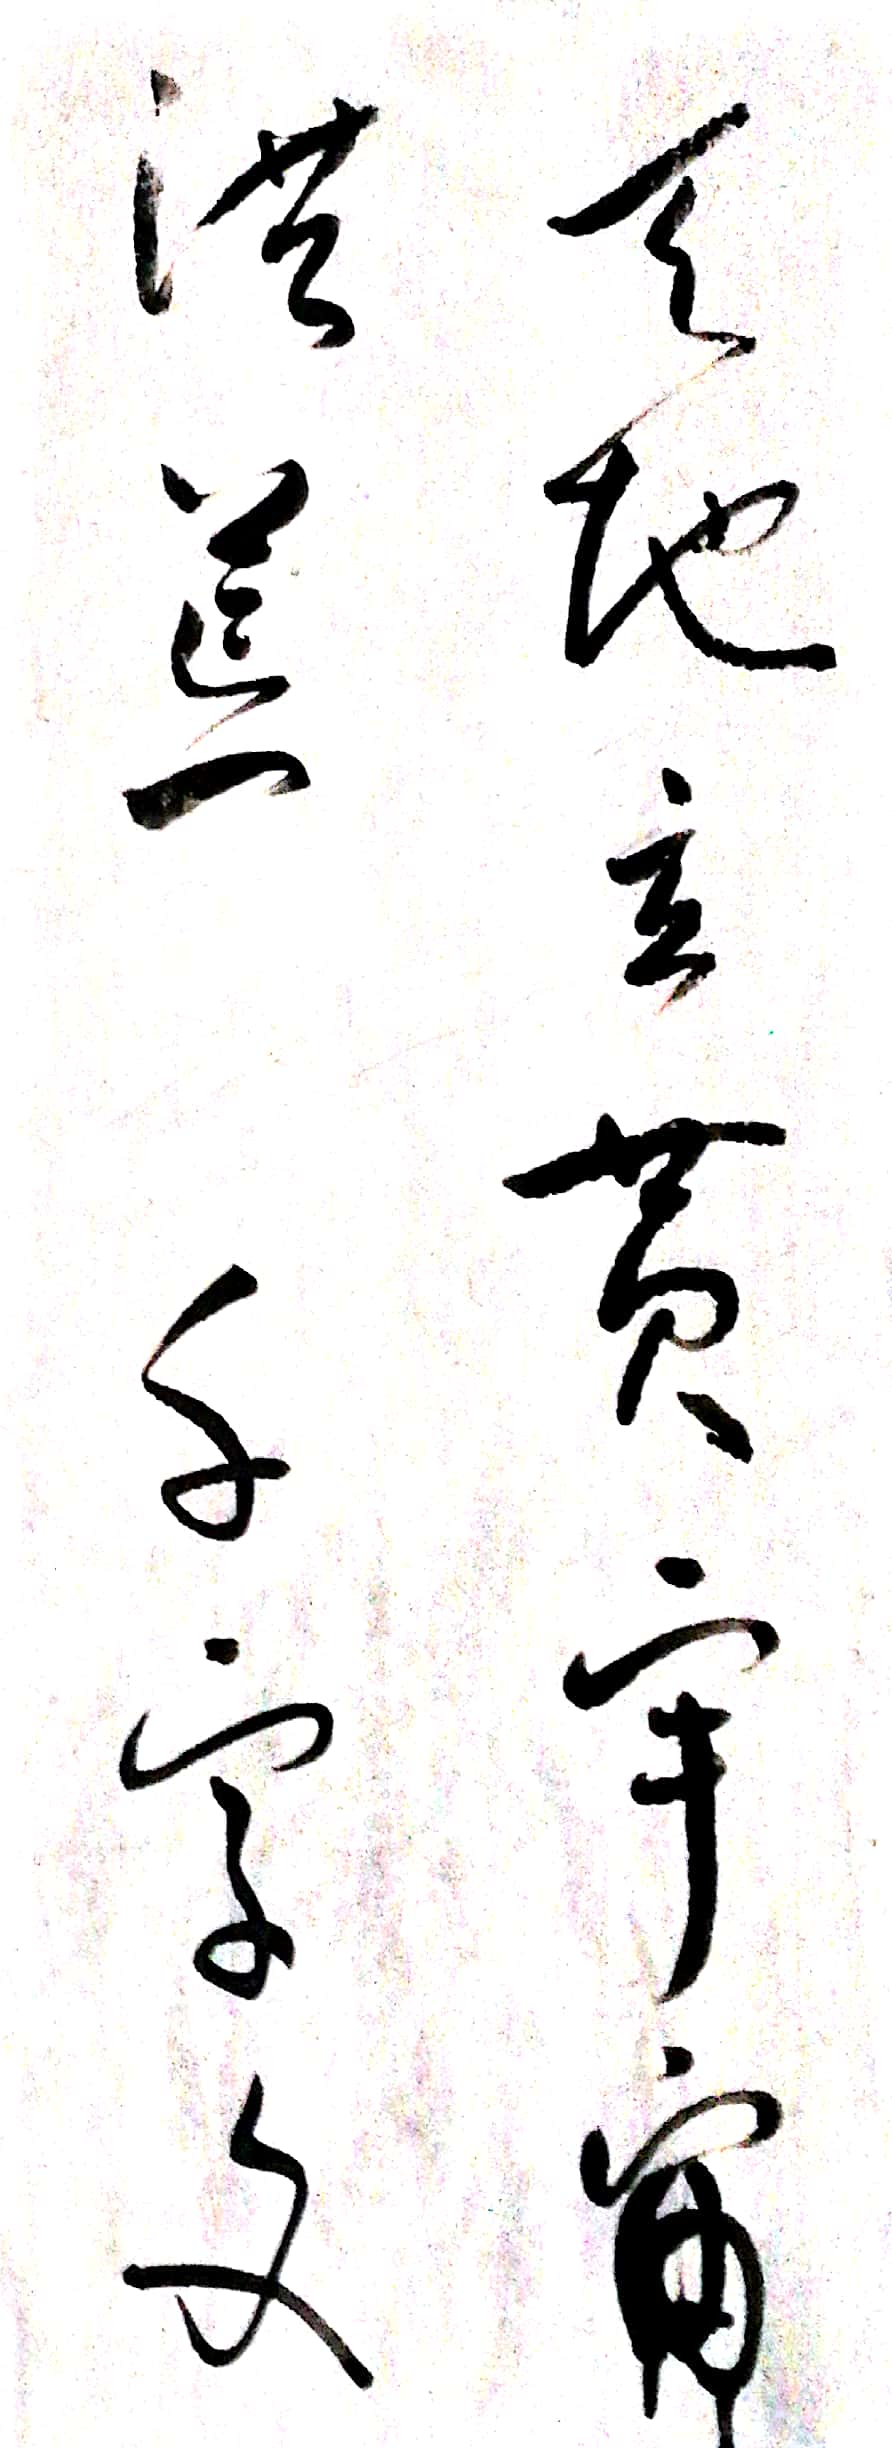 天地玄黄宇宙
洪荒 千字文